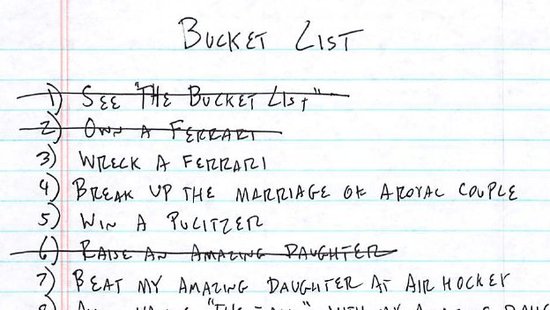 BUCKET LIST
1) SEE "THE BUCKET LIST"
2) OWN A FERRARI
3) WRECK A FERRARI
4) BREAK UP THE MARRIAGE OF A ROYAL COUPLE
5) WIN A PULITZER
6) RAISE AN AMAZING DAUGHTER
7) BEAT MY AMAZING DAUGHTER AT AIR HOCKEY